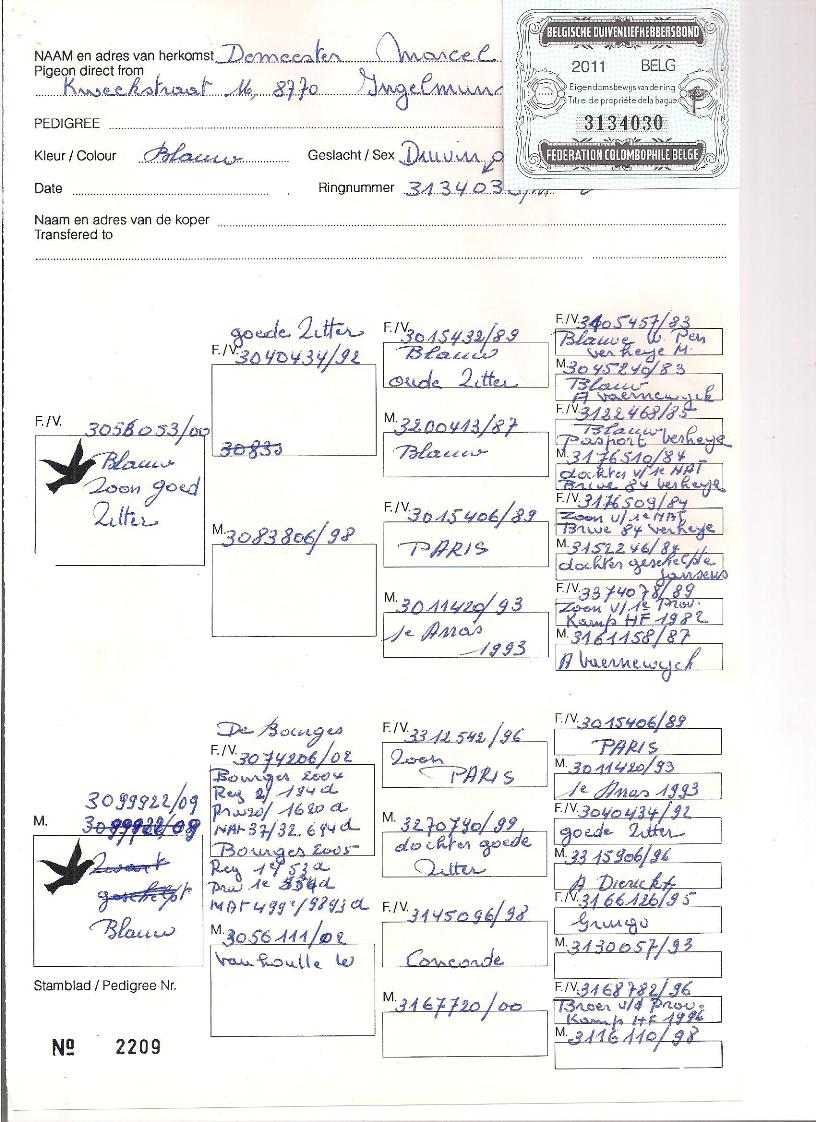 NAAM en adres van herkomst Demeester Marcel
Pigeon direct from
Kweekstraat 16, 8770 Ingelmuns
PEDIGREE
Kleur / Colour Blauw Geslacht / Sex Duivin
Date Ringnummer 3134030/11
Naam en adres van de koper
Transfered to
BELGISCHE DUIVENLIEFHEBBERSBOND
2011 BELG
Eigendomsbewijs van de ring
Titre de propriété de la bague
3134030
FEDERATION COLOMBOPHILE BELGE
F./V. 3058053/00
Blauw
Zoon goed
Zitter
goede Zitter
F./V. 3040434/92
30835
M. 3083806/98
F./V. 3015432/89
Blauw
oude Zitter
M. 3200413/87
Blauw
F./V. 3015406/89
PARIS
M. 3011420/93
1e Arras
1993
F./V. 3105457/83
Blauwe W. Pen
verheye M.
M. 3045240/83
Blauw
A vaernewyck
F./V. 3122468/85
Blauw
Pasport verheye
M. 3176510/84
dochter v/1e NAT
Brive 84 verheye
F./V. 3176509/84
Zoon v/1e NAT
Brive 84 verheye
M. 3152246/84
dochter geschelpte
Jansens
F./V. 3374078/89
Zoon v/1e Prov.
Kamp HF 1982
M. 3161158/87
A Vaernewyck
M. 3099922/09
3099922/08
Zwart
geschelpt
Blauw
De Bourges
F./V. 3074206/02
Bourges 2004
Reg 2/ 194 d
Prov 20/ 1620 d
NAT 37/32.694 d
Bourges 2005
Reg 1e/ 53 d
Prov 1e 554 d
NAT 499e/9893 d
M. 3056111/02
Vanhoutte W
F./V. 3312542/96
Zoon
PARIS
M. 3270790/99
dochter goede
Zitter
F./V. 3145096/98
Concorde
M. 3167720/00
F./V. 3015406/89
PARIS
M. 3011420/93
1e Arras 1993
F./V. 3040434/92
goede Zitter
M. 3315906/96
A Dierickx
F./V. 3166126/95
Gringo
M. 3130057/93
F./V. 3168782/96
Broer v/d Prov.
Kamp HF 1996
M. 3116110/98
Stamblad / Pedigree Nr.
Nº 2209